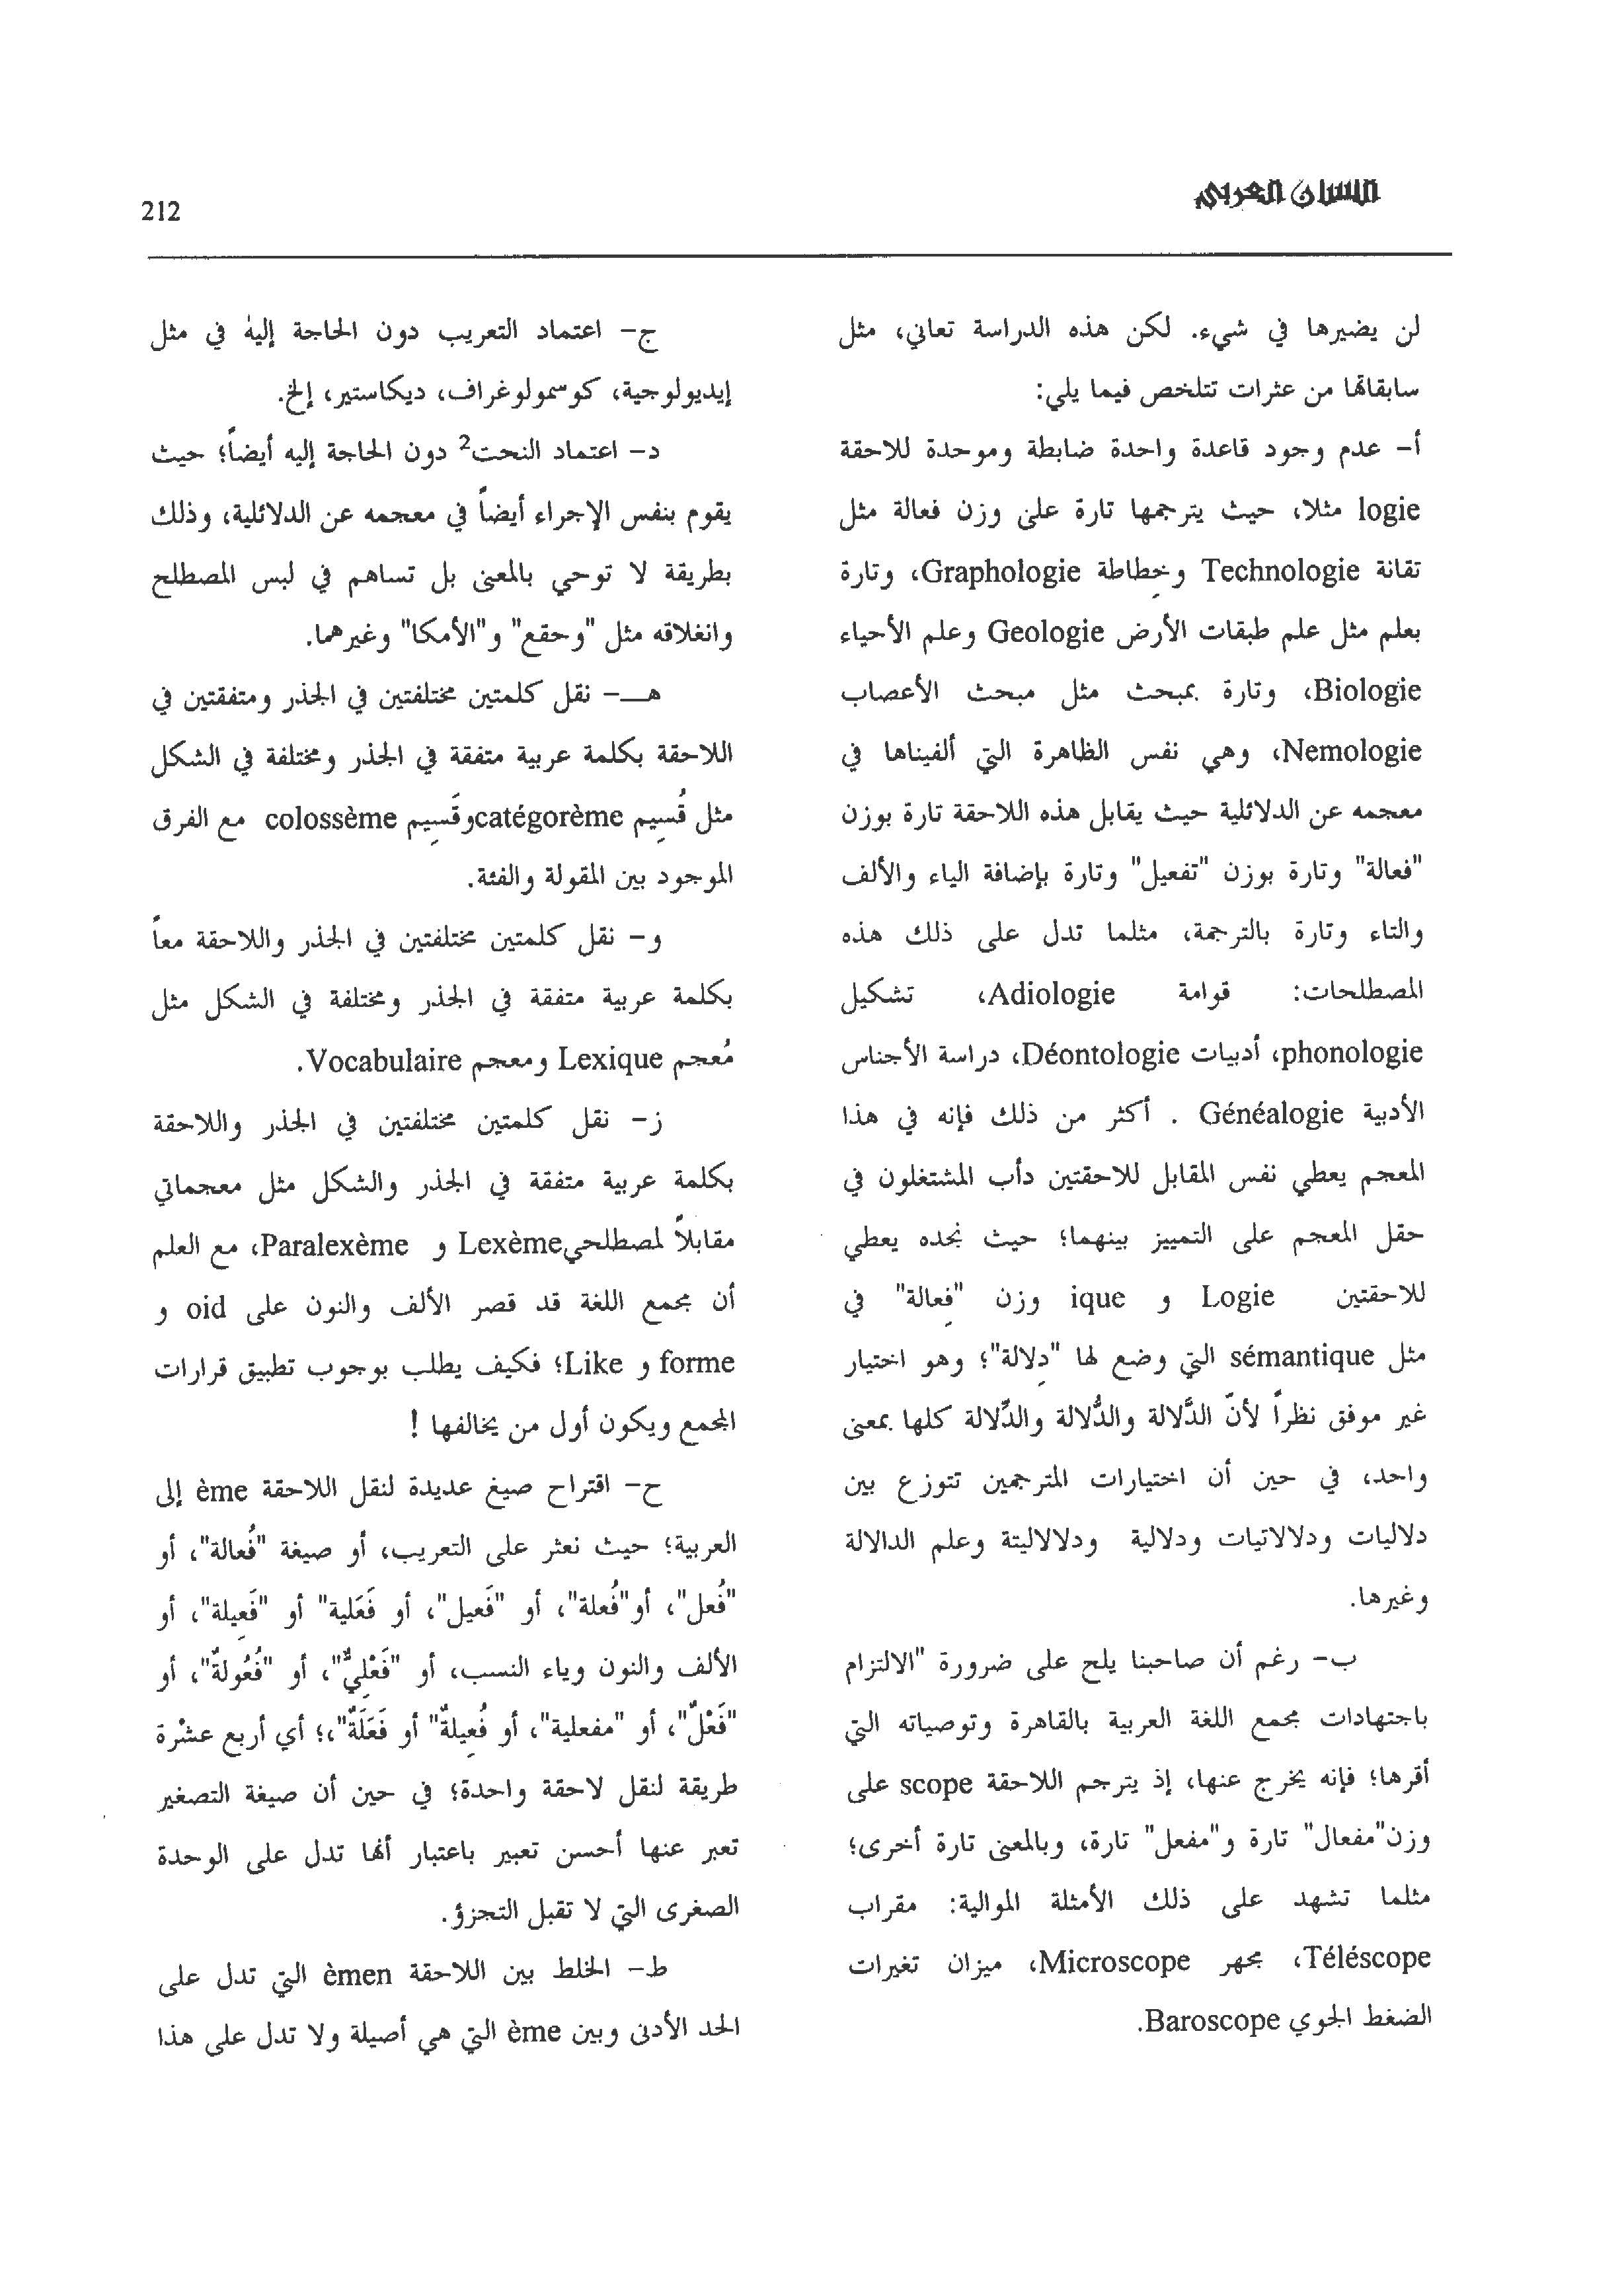 اللسان العربي
212
لن يضيرها في شيء. لكن هذه الدراسة تعاني، مثل
سابقاتها من عثرات تتلخص فيما يلي:
أ- عدم وجود قاعدة واحدة ضابطة وموحدة للاحقة
logie مثلا، حيث يترجمها تارة على وزن فعالة مثل
تقانة Technologie وخِطاطة Graphologie، وتارة
بعلم مثل علم طبقات الأرض Geologie وعلم الأحياء
Biologie، وتارة بمبحث مثل مبحث الأعصاب
Nemologie، وهي نفس الظاهرة التي ألفيناها في
معجمه عن الدلائلية حيث يقابل هذه اللاحقة تارة بوزن
"فعالة" وتارة بوزن "تفعيل" وتارة بإضافة الياء والألف
والتاء وتارة بالترجمة، مثلما تدل على ذلك هذه
المصطلحات: قوامة Adiologie، تشكيل
phonologie، أدبيات Déontologie، دراسة الأجناس
الأدبية Généalogie . أكثر من ذلك فإنه في هذا
المعجم يعطي نفس المقابل للاحقتين دأب المشتغلون في
حقل المعجم على التمييز بينهما؛ حيث نجده يعطي
للاحقتين Logie و ique وزن "فِعالة" في
مثل sémantique التي وضع لها "دِلالة"؛ وهو اختيار
غير موفق نظراً لأنّ الدَّلالة والدُّلالة والدِّلالة كلها بمعنى
واحد، في حين أن اختيارات المترجمين تتوزع بين
دلاليات ودلالاتيات ودلالية ودلالاليتة وعلم الدالالة
وغيرها.
ب- رغم أن صاحبنا يلح على ضرورة "الالتزام
باجتهادات مجمع اللغة العربية بالقاهرة وتوصياته التي
أقرها؛ فإنه يخرج عنها، إذ يترجم اللاحقة scope على
وزن"مفعال" تارة و"مفعل" تارة، وبالمعنى تارة أخرى؛
مثلما تشهد على ذلك الأمثلة الموالية: مقراب
Téléscope، مجهر Microscope، ميزان تغيرات
الضغط الجوي Baroscope.
ج- اعتماد التعريب دون الحاجة إليه في مثل
إيديولوجية، كوسمولوغراف، ديكاستير، إلخ.
د- اعتماد النحت2 دون الحاجة إليه أيضاً؛ حيث
يقوم بنفس الإجراء أيضاً في معجمه عن الدلائلية، وذلك
بطريقة لا توحي بالمعنى بل تساهم في لبس المصطلح
وانغلاقه مثل "وحقع" و"الأمكا" وغيرهما.
هـ- نقل كلمتين مختلفتين في الجذر ومتفقتين في
اللاحقة بكلمة عربية متفقة في الجذر ومختلفة في الشكل
مثل قُسِيم catégorème وقَسِيم colossème مع الفرق
الموجود بين المقولة والفئة.
و- نقل كلمتين مختلفتين في الجذر واللاحقة معاً
بكلمة عربية متفقة في الجذر ومختلفة في الشكل مثل
مُعجم Lexique ومعجم Vocabulaire.
ز- نقل كلمتين مختلفتين في الجذر واللاحقة
بكلمة عربية متفقة في الجذر والشكل مثل معجماتي
مقابلاً لمصطلحي Lexème و Paralexème، مع العلم
أن مجمع اللغة قد قصر الألف والنون على oid و
forme و Like؛ فكيف يطلب بوجوب تطبيق قرارات
المجمع ويكون أول من يخالفها !
ح- اقتراح صيغ عديدة لنقل اللاحقة ème إلى
العربية؛ حيث نعثر على التعريب، أو صيغة "فُعالة"، أو
"فُعل"، أو"فُعلة"، أو "فَعيل"، أو فَعَلية" أو "فَعِيلة"، أو
الألف والنون وياء النسب، أو "فَعْلِيٌّ"، أو "فُعُولةٌ"، أو
"فَعْلٌ"، أو "مفعلية"، أو فُعِيلةٌ" أو فَعَلَةٌ"،؛ أي أربع عشْرة
طريقة لنقل لاحقة واحدة؛ في حين أن صيغة التصغير
تعبر عنها أحسن تعبير باعتبار أنها تدل على الوحدة
الصغرى التي لا تقبل التجزؤ.
ط- الخلط بين اللاحقة èmen التي تدل على
الحد الأدنى وبين ème التي هي أصيلة ولا تدل على هذا